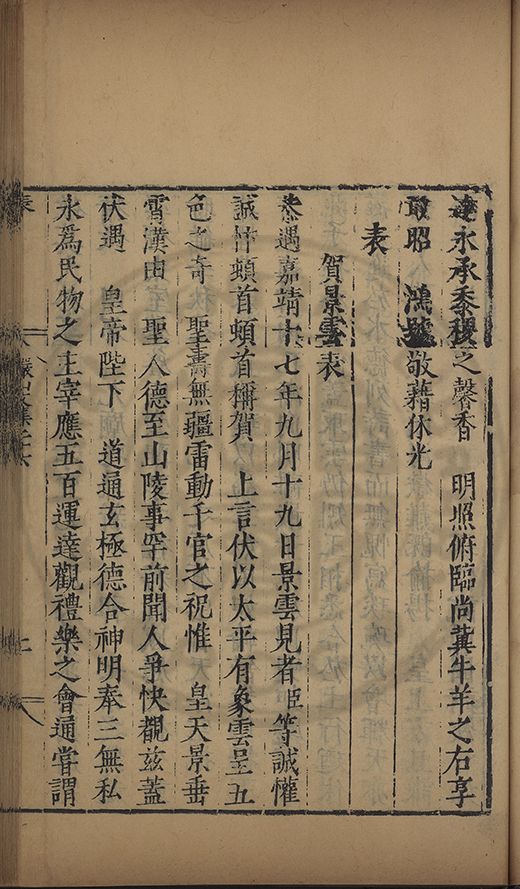 達永承黍稷之馨香　明照俯臨尚冀牛羊之右享
昭　鴻號敬藉休光
表
賀景雲表
恭遇嘉靖十七年九月十九日景雲見者臣等誠懽
誠忭頓首頓首稱賀　上言伏以太平有象雲呈五
色之奇　聖壽無疆雷動千官之祝惟　皇天景垂
霄漢由　聖人德至山陵事罕前聞人爭快覩茲蓋
伏遇　皇帝陛下　道通玄極德合神明奉三無私
永為民物之主宰應五百運達觀禮樂之會通嘗謂